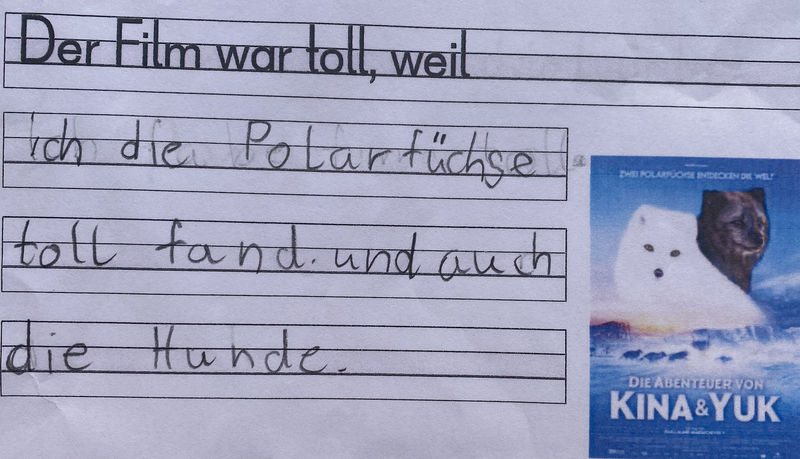 Der Film war toll, weil
ich die Polarfüchse
toll fand. und auch
die Hunde.
ZWEI POLARFÜCHSE ENTDECKEN DIE WELT
DIE ABENTEUER VON
KINA & YUK